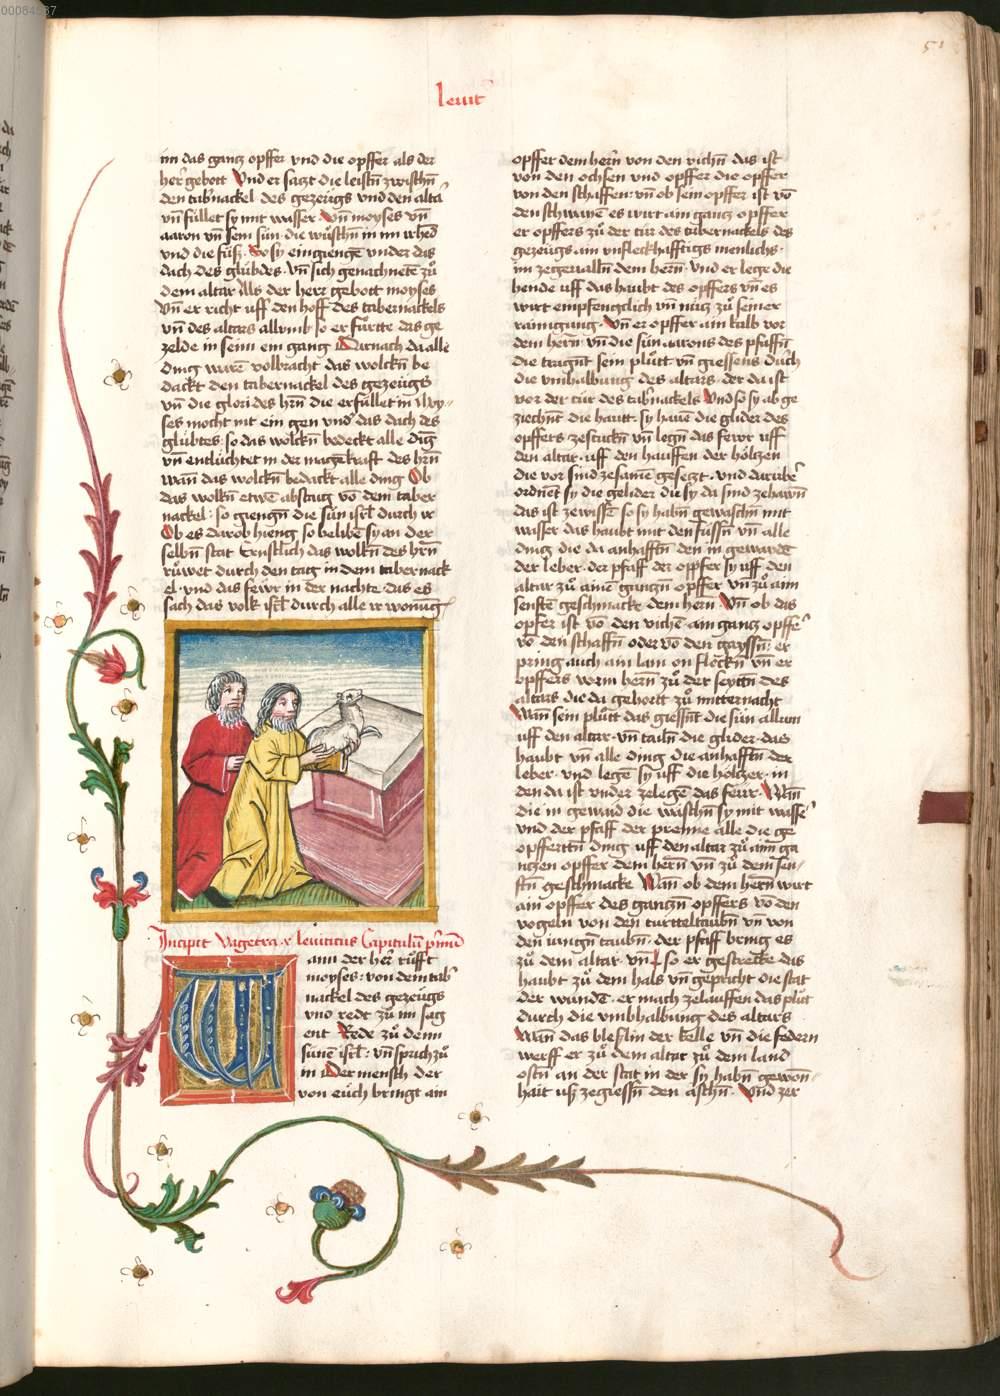 00084567
51
leuit
im das gantz opffer vnd die opffer als der
her gebott Vnd er satzt die leistn̄ zwischn̄
den tab'nackel des gezeugs vnd den alta
vn̄ füllet sy mit wasser Vn̄ moyses vn̄
aaron vn̄ sein sün die wüschn̄ in im ir hēd
vnd die füß. So sy eingiengē vnder das
dach des glübdes. Vn̄ sich genachnetē zů
dem altar Als der herr gebott moyses
Vn̄ er richt uff den hoff des tabernackels
vn̄ des altars allvmb so er fürtte das ge
zelde in seinn ein gang Darnach da alle
ding warē volbracht das wolckn̄ be
dackt den tabernackel des gezeugs
vn̄ die glori des hrn̄ die erfüllet in Moy
ses mocht nit ein gen vnd' das dach des
glübtes: so das wolckn̄ bedeckt alle dīg
vn̄ entlüchtet in der magekraft des hrn̄
Wan̄ das wolckn̄ bedackt alle ding Ob
das wolkn̄ etwē abstaig vō dem taber
nackel: so giengn̄ die sün isrl̄ durch ir
Ob es darob hieng so belibē sy an der
selbn̄ stat Ernstlich das wolkn̄ des hrn̄
růwet durch den tag in dem tabernack
el. vnd das fewr in der nachte. das es
sach das volk isrl̄ durch alle ir wonūg
Incipit Vagetra r leuiticus Capitulū prīmū
Wann der her rüfft
moyses: von dem tab'
nackel des gezeugs
vnd redt zů im sag
ent Rede zů denn
sünē isrl̄: vn̄ sprich zů
in Der mensch der
von eüch bringt ain
opffer dem hern̄ von den vichn̄ das ist
von den ochsen vnd opffer die opffer
von den schaffen: vn̄ ob sein opffer ist vō
den schwainē es wirt ain gantz opffer
er opffers zů der tür des tabernackels des
gezeugs ain vnfleckhafftigs menlichs.
im zegeualln̄ dem hern̄. Vnd er lege die
hende uff das haubt des opffers vn̄ es
wirt empfengclich vn̄ nütz zů seiner
rainigung. Vn̄ er opffer ain kalb vor
dem hern̄ vn̄ die sün aarons des pfaffn̄
die tragnt sein plůtt vn̄ giessens durch
die vmbhalbung des altars. der da ist
vor der tür des tab'nackels Vnd so sy ab ge
ziechnt die hautt: sy hauē die glider des
opffers zestuckn̄ vn̄ legn̄ das fewr uff
den altar. uff den hauffen der höltzen
die vor sind zesamē gesetzt. vnd darüb'
ordnēt sy die gelider die sy da sind zehawn̄
das ist zewissē so sy habn̄ gewaschn̄ mit
wasser das haubt mit den füssn̄ vn̄ alle
ding die da anhafftn̄ den in gewaidē
der leber. der pfaff der opffer sy uff den
altar zů ainē gantzn̄ opffer vn̄ zů aim
senftē geschmacke dem hern̄. Vn̄ ob das
opfer ist vō den vichē ain gantz opffe'
vō den schaffn̄ oder vō den gayssn̄: er
pring auch ain lam on fleckn̄ vn̄ er
opffers vorm hern̄ zů der seyttn̄ des
altars die da gehortt zů mitternacht
Wan̄ sein plůtt das giessn̄t die sün allum
uff den altar. vn̄ tailn̄ die glider. das
haubt vn̄ alle ding die anhafftn̄ der
leber. vnd legē sy uff die höltzer. in
den da ist vnder zelegē das fewr. Wan̄
die in gewaid die wäschn̄ sy mit wasse'
vnd der pfaff der prenne alle die ge
opffertn̄ ding uff den altar zů aim ga
ntzen opffer dem hern̄ vn̄ zů dem sen
ftn̄ geschmacke Wan̄ ob dem hern̄ wirt
ain opffer des gantzn̄ opffers vō den
vogeln von den turtteltaubn̄ vn̄ von
den iungn̄ taubn̄. der pfaff bring es
zů dem altar vn̄ so er gestreckē das
haubt zů dem hals vn̄ gepricht die stat
der wundē. er mach zelauffen das plůt
durch die vmbhalbung des altars
Wan̄ das bleslin der kelle vn̄ die federn
werff er zů dem altar zů dem land
ostn̄ an der stat in der sy habn̄ gewon
hait uß zegiessn̄ den aschn̄. Vnd zer